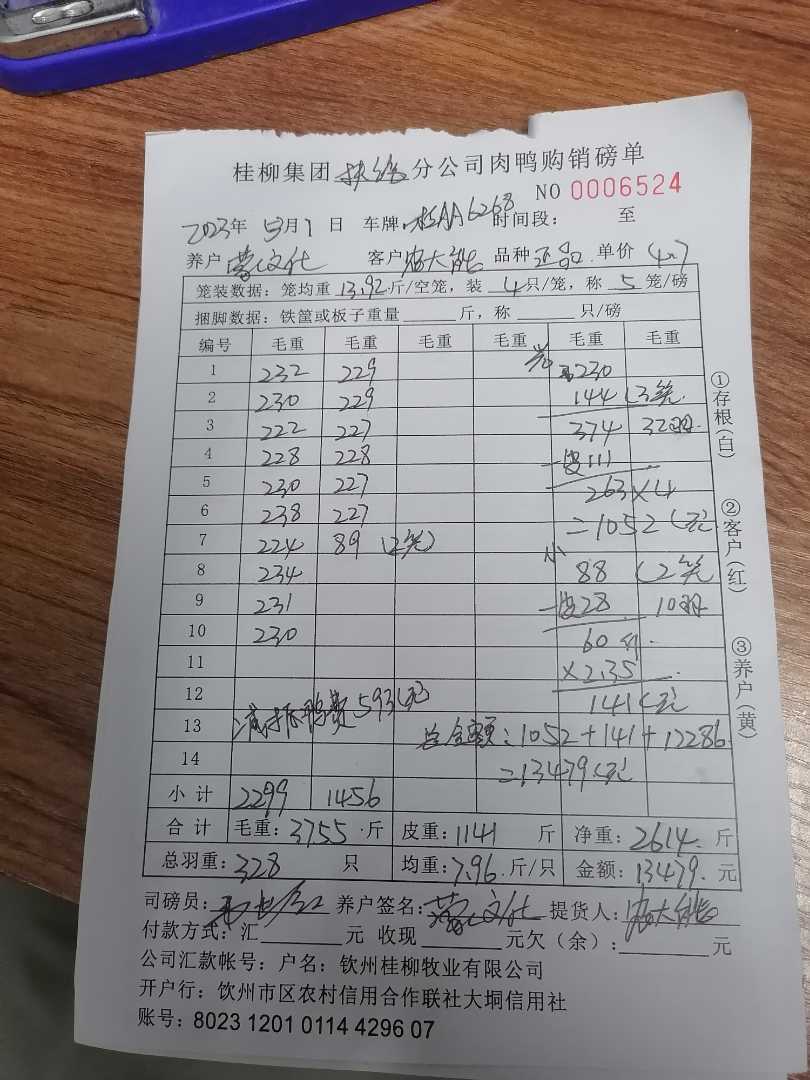 桂柳集团扶绥分公司肉鸭购销磅单
NO 0006524
2023年 5月1日 车牌: 桂AA6268 时间段: 至
养户 客户 品种 正品 单价 (4.7
笼装数据: 笼均重 13.92 斤/空笼, 装 4 只/笼, 称 5 笼/磅
捆脚数据: 铁筐或板子重量 斤, 称 只/磅
编号 毛重 毛重 毛重 毛重 毛重 毛重
1 232 229 230
2 230 229 144 (3笼
3 222 227 374 32羽.
4 228 228 -皮111
5 230 227 263×4
6 238 227 =1052(元
7 224 89 (2笼) 小
8 234 88 (2笼
9 231 -皮28 10羽
10 230 60斤.
11 ×2.35
12 141(元
减拆鸭费593(元
13 总金额: 1052+141+12286
14 =13479(元
小计 2299 1456
合计 毛重: 3755.斤 皮重: 1141 斤 净重: 2614. 斤
总羽重: 328 只 均重: 7.96.斤/只 金额: 13479. 元
司磅员: 养户签名: 提货人:
付款方式: 汇 元 收现 元欠(余): 元
公司汇款帐号: 户名: 钦州桂柳牧业有限公司
开户行: 饮州市区农村信用合作联社大垌信用社
账号: 8023 1201 0114 4296 07
①存根(白)
②客户(红)
③养户(黄)